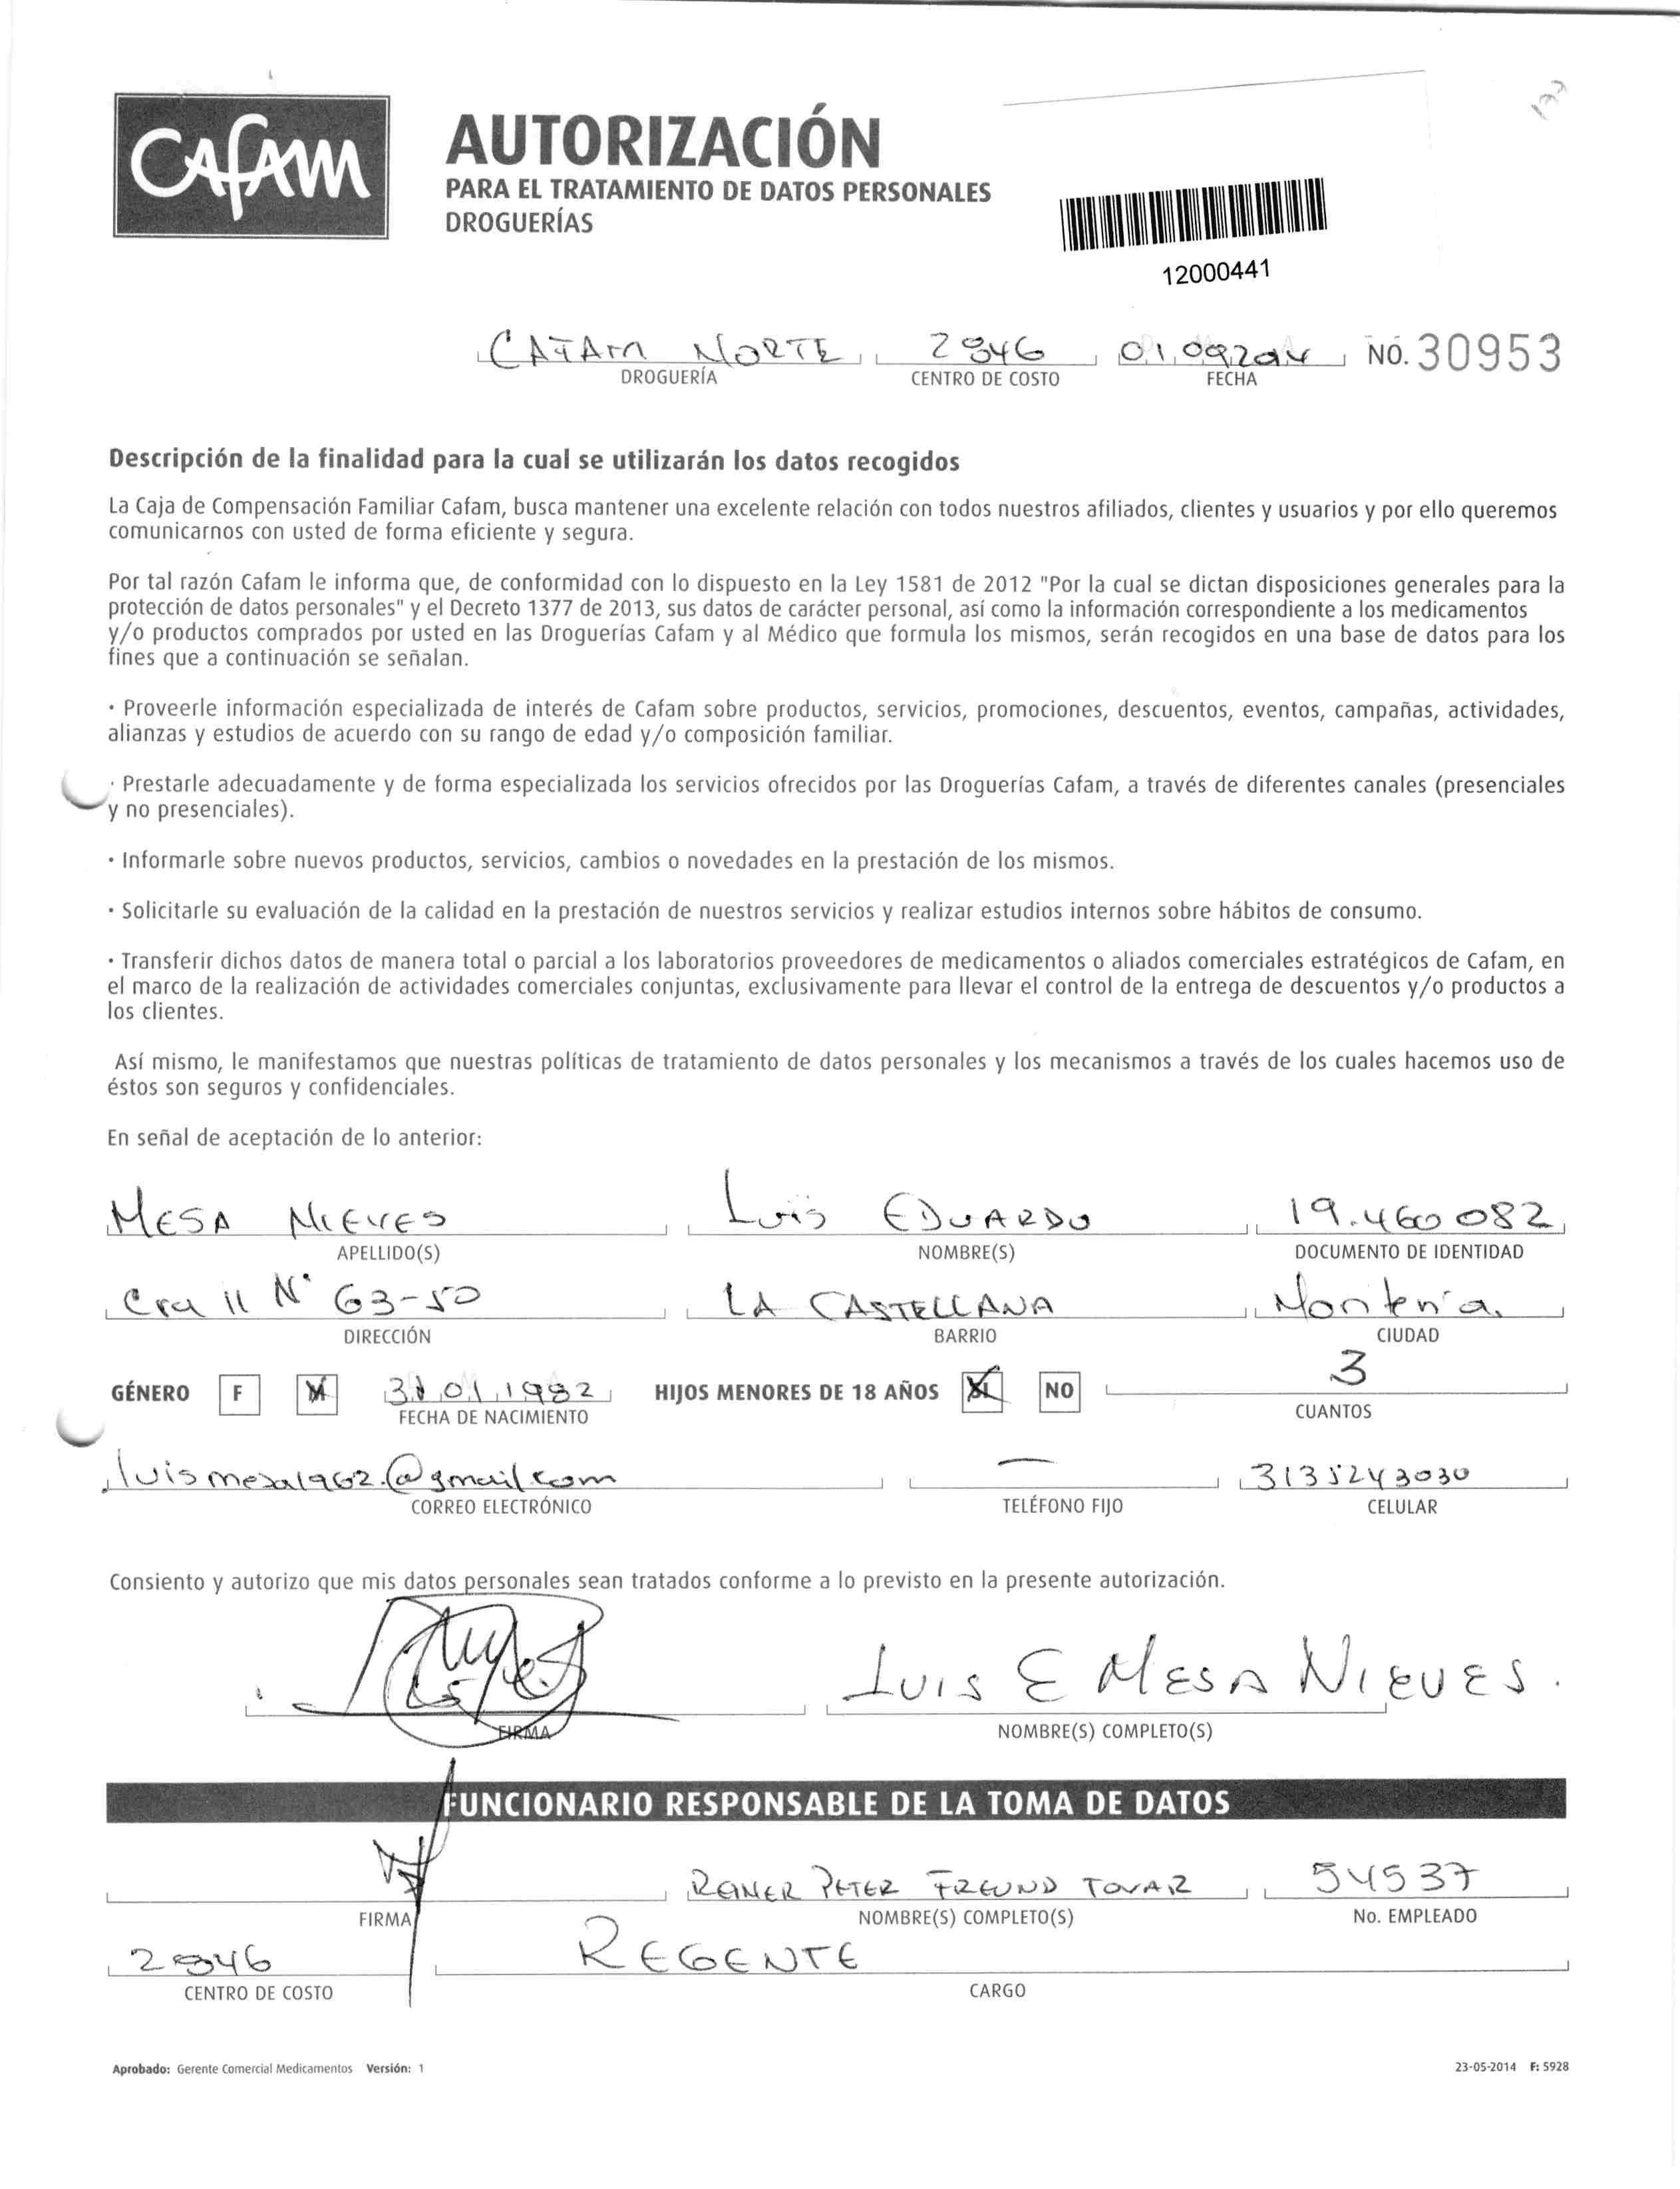 Cafam
AUTORIZACIÓN
PARA EL TRATAMIENTO DE DATOS PERSONALES
DROGUERÍAS
12000441
CAFAM NORTE 2846 01 09 2014 NO. 30953
DROGUERÍA CENTRO DE COSTO FECHA
Descripción de la finalidad para la cual se utilizarán los datos recogidos
La Caja de Compensación Familiar Cafam, busca mantener una excelente relación con todos nuestros afiliados, clientes y usuarios y por ello queremos
comunicarnos con usted de forma eficiente y segura.
Por tal razón Cafam le informa que, de conformidad con lo dispuesto en la Ley 1581 de 2012 "Por la cual se dictan disposiciones generales para la
protección de datos personales" y el Decreto 1377 de 2013, sus datos de carácter personal, así como la información correspondiente a los medicamentos
y/o productos comprados por usted en las Droguerías Cafam y al Médico que formula los mismos, serán recogidos en una base de datos para los
fines que a continuación se señalan.
· Proveerle información especializada de interés de Cafam sobre productos, servicios, promociones, descuentos, eventos, campañas, actividades,
alianzas y estudios de acuerdo con su rango de edad y/o composición familiar.
· Prestarle adecuadamente y de forma especializada los servicios ofrecidos por las Droguerías Cafam, a través de diferentes canales (presenciales
y no presenciales).
· Informarle sobre nuevos productos, servicios, cambios o novedades en la prestación de los mismos.
· Solicitarle su evaluación de la calidad en la prestación de nuestros servicios y realizar estudios internos sobre hábitos de consumo.
· Transferir dichos datos de manera total o parcial a los laboratorios proveedores de medicamentos o aliados comerciales estratégicos de Cafam, en
el marco de la realización de actividades comerciales conjuntas, exclusivamente para llevar el control de la entrega de descuentos y/o productos a
los clientes.
Así mismo, le manifestamos que nuestras políticas de tratamiento de datos personales y los mecanismos a través de los cuales hacemos uso de
éstos son seguros y confidenciales.
En señal de aceptación de lo anterior:
MESA NIEVES LUIS EDUARDO 19.460082
APELLIDO(S) NOMBRE(S) DOCUMENTO DE IDENTIDAD
Cra 11 N° 63-50 LA CASTELLANA Montería
DIRECCIÓN BARRIO CIUDAD
GÉNERO F M 01 HIJOS MENORES DE 18 AÑOS SI NO 3
FECHA DE NACIMIENTO CUANTOS
luismesa1962.@gmail.com — 3135243030
CORREO ELECTRÓNICO TELÉFONO FIJO CELULAR
Consiento y autorizo que mis datos personales sean tratados conforme a lo previsto en la presente autorización.
LUIS E MESA NIEVES.
FIRMA NOMBRE(S) COMPLETO(S)
FUNCIONARIO RESPONSABLE DE LA TOMA DE DATOS
REINER PETER FREUND TOVAR 54537
FIRMA NOMBRE(S) COMPLETO(S) No. EMPLEADO
2846 REGENTE
CENTRO DE COSTO CARGO
Aprobado: Gerente Comercial Medicamentos Versión: 1 23-05-2014 F: 5928